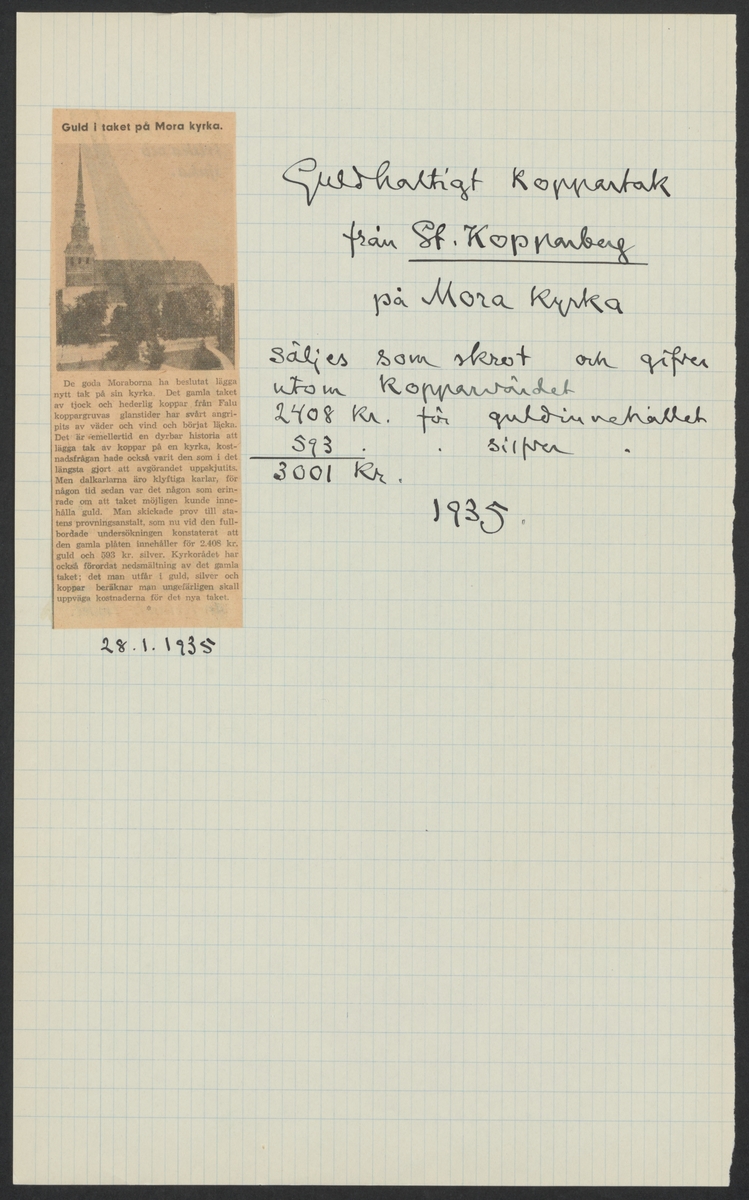 Guld i taket på Mora kyrka.
De goda Moraborna ha beslutat lägga
nytt tak på sin kyrka. Det gamla taket
av tjock och hederlig koppar från Falu
koppargruvas glanstider har svårt angri-
pits av väder och vind och börjat läcka.
Det är emellertid en dyrbar historia att
lägga tak av koppar på en kyrka, kost-
nadsfrågan hade också varit den som i det
längsta gjort att avgörandet uppskjutits.
Men dalkarlarna äro klyftiga karlar, för
någon tid sedan var det någon som erin-
rade om att taket möjligen kunde inne-
hålla guld. Man skickade prov till sta-
tens provningsanstalt, som nu vid den full-
bordade undersökningen konstaterat att
den gamla plåten innehåller för 2.408 kr.
guld och 593 kr. silver. Kyrkorådet har
också förordat nedsmältning av det gamla
taket; det man utfår i guld, silver och
koppar beräknar man ungefärligen skall
uppväga kostnaderna för det nya taket.
28.1.1935
Guldhaltigt koppartak
från St. Kopparberg
på Mora Kyrka
säljes som skrot och gifver
utom kopparvärdet
2408 Kr. för guldinnehållet
593 . . silfver .
3001 Kr.
1935.